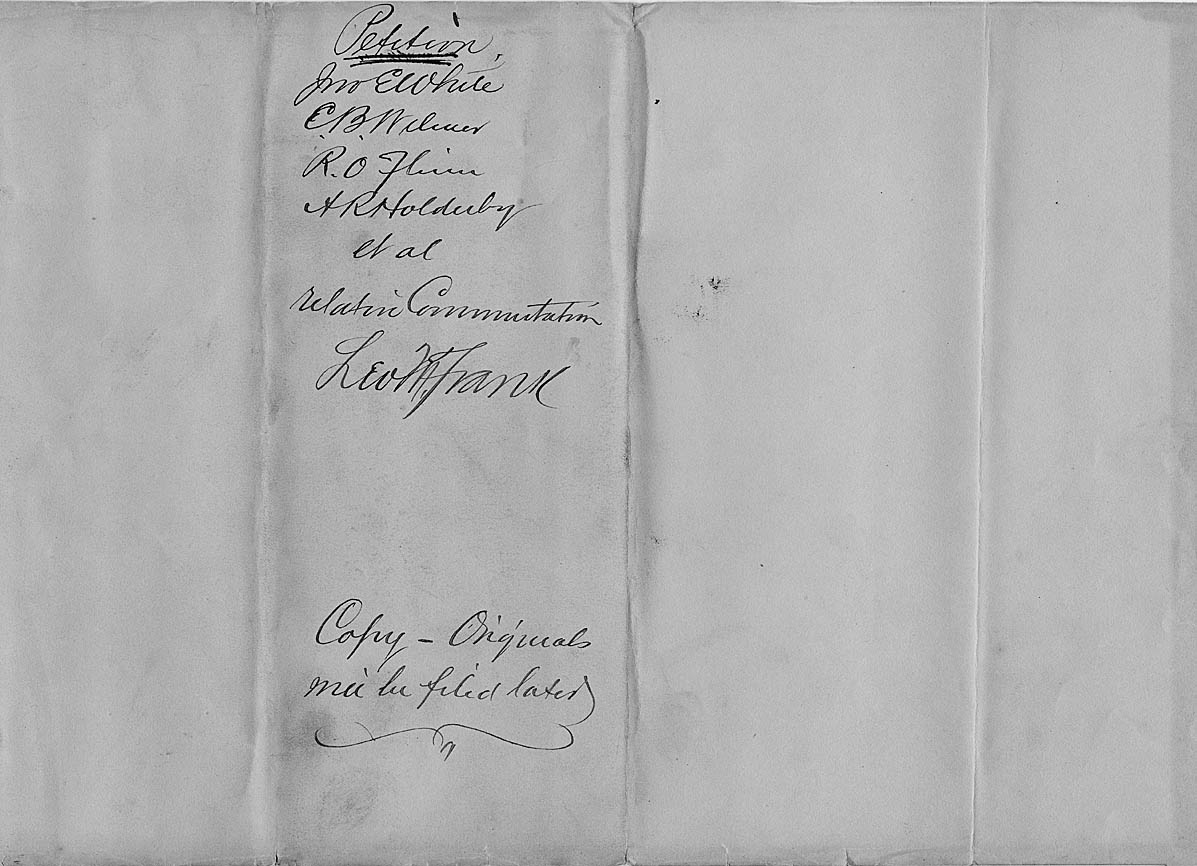 Petition,
Jno E White
C. B. Wilmer
R. O Flinn
A R Holderby
et al
relative Commutation
Leo M. Frank
Copy – Originals
will be filed later